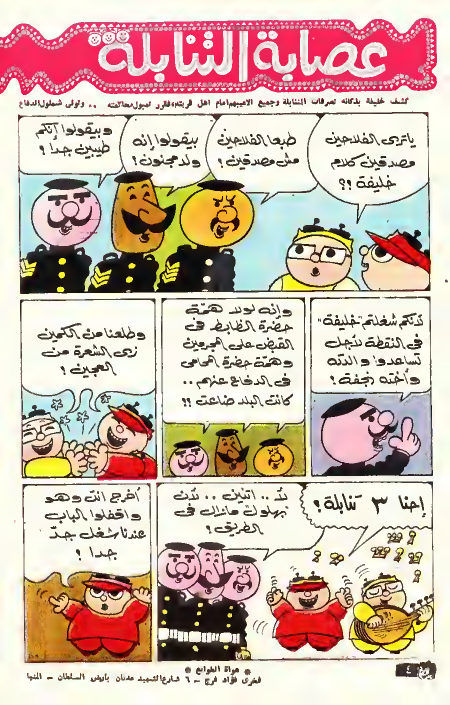 عصابة التنابلة
كشف خليفة بذكائه تصرفات التنابلة وجميع ألاعيبهم أمام أهل قريته، فقرر تمبول محاكمته .. وتولى شملول الدفاع
ياترى الفلاحين
مصدقين كلام
خليفة ؟؟
طبعا الفلاحين
مش مصدقين !
بيقولوا إنه
ولد مجنون !
وبيقولوا إنكم
طيبين جدا !
لأنكم شغلتم "خليفة"
فى النقطة لأجل
تساعدوا والدته
وأخته نجفة !
وإنه لولا همّة
حضرة الظابط فى
القبض على المجرمين
وهمّة حضرة المحامى
فى الدفاع عنهم ..
كانت البلد ضاعت !!
وطلعنا من الكمين
زى الشعرة من
العجين !
إحنا ٣ تنابلة !
لأ .. اتنين .. لأن
بهلول مازال فى
الطريق !
أخرج انت وهو
واقفلوا الباب
عندنا شغل جدّ
جدا !
* هواة الطوابع *
فخرى فؤاد فرج – ٦ شارع الشهيد عدنان بأرض السلطان – المنيا
٤